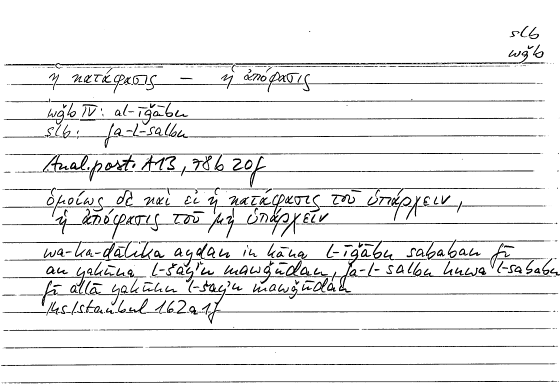 slb
wǧb
ἡ κατάφασις — ἡ ἀπόφασις
wǧb IV: al-īǧābu
slb: fa-l-salbu
Anal.post. A13, 78b 20f
ὁμοίως δὲ καὶ εἰ ἡ κατάφασις τοῦ ὑπάρχειν,
ἡ ἀπόφασις τοῦ μὴ ὑπάρχειν
wa-ka-ḏālika ayḍan in kāna l-īǧābu sababan fī
an yakūna l-šayʾu mawǧūdan, fa-l-salbu huwa l-sababu
fī allā yakūna l-šayʾu mawǧūdan
Hs Istanbul 162a1f